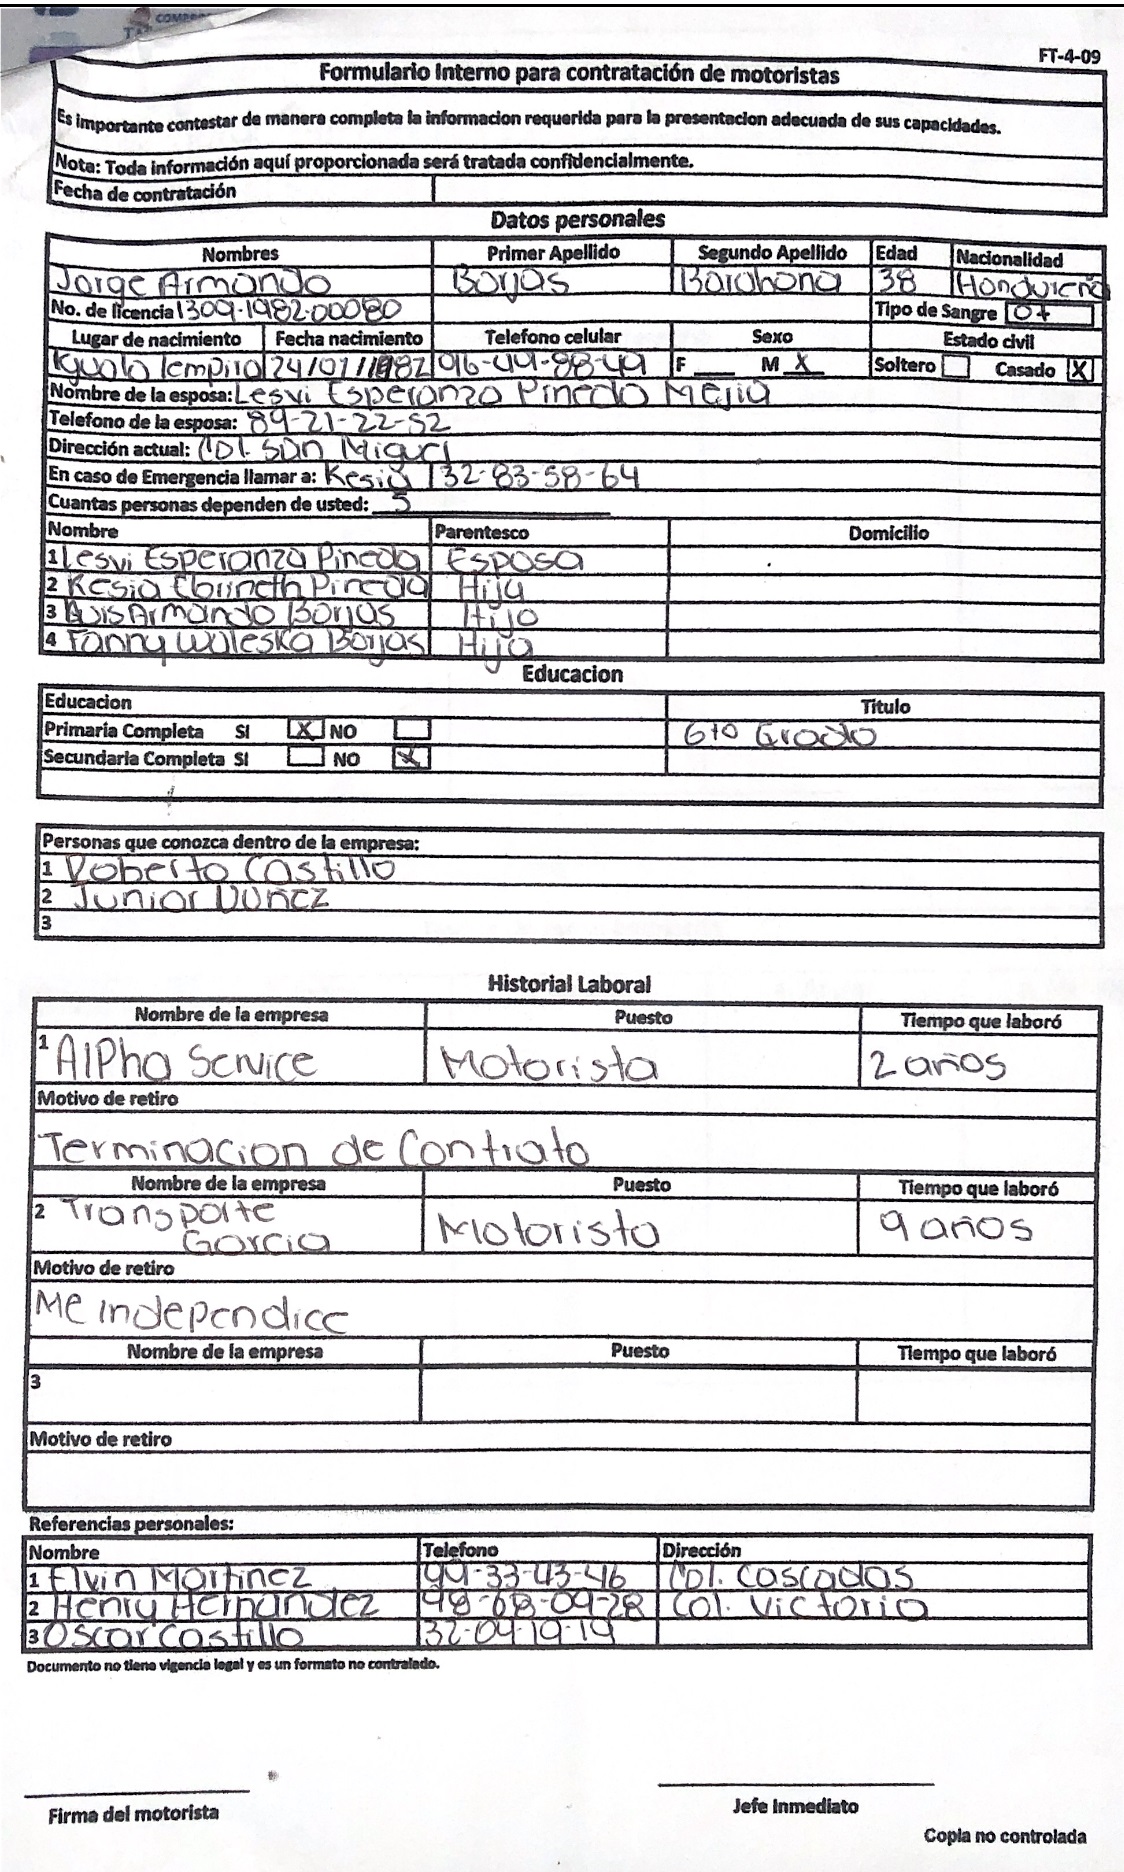 COMPR
FT-4-09
Formulario Interno para contratación de motoristas
Es importante contestar de manera completa la informacion requerida para la presentacion adecuada de sus capacidades.
Nota: Toda información aquí proporcionada será tratada confidencialmente.
Fecha de contratación
Datos personales
Nombres Primer Apellido Segundo Apellido Edad Nacionalidad
Jorge Armando Borjas Barahona 38 Hondureña
No. de licencia 1309-1982-00080 Tipo de Sangre O+
Lugar de nacimiento Fecha nacimiento Telefono celular Sexo Estado civil
Iguala Lempira 24/07/1982 96-49-88-49 F ___ M X Soltero Casado X
Nombre de la esposa: Lesvi Esperanza Pineda Mejia
Telefono de la esposa: 89-21-22-52
Dirección actual: Col. San Miguel
En caso de Emergencia llamar a: Kesia 32-83-58-64
Cuantas personas dependen de usted: 5
Nombre Parentesco Domicilio
1 Lesvi Esperanza Pineda Esposa
2 Kesia Pineda Hija
3 Luis Armando Borjas Hijo
4 Fanny Waleska Borjas Hija
Educacion
Educacion Titulo
Primaria Completa SI X NO 6to Grado
Secundaria Completa SI NO X
Personas que conozca dentro de la empresa:
1 Roberto Castillo
2 Junior Nuñez
3
Historial Laboral
Nombre de la empresa Puesto Tiempo que laboró
1 Alpha Service Motorista 2 años
Motivo de retiro
Terminacion de Contrato
Nombre de la empresa Puesto Tiempo que laboró
2 Transporte Garcia Motorista 9 años
Motivo de retiro
Me independice
Nombre de la empresa Puesto Tiempo que laboró
3
Motivo de retiro
Referencias personales:
Nombre Telefono Dirección
1 Elvin Martinez 99-33-43-46 Col. Cascadas
2 Henry Hernandez 98-08-09-28 Col. Victoria
3 Oscar Castillo 32-09-19-19
Documento no tiene vigencia legal y es un formato no contralado.
Firma del motorista
Jefe Inmediato
Copia no controlada